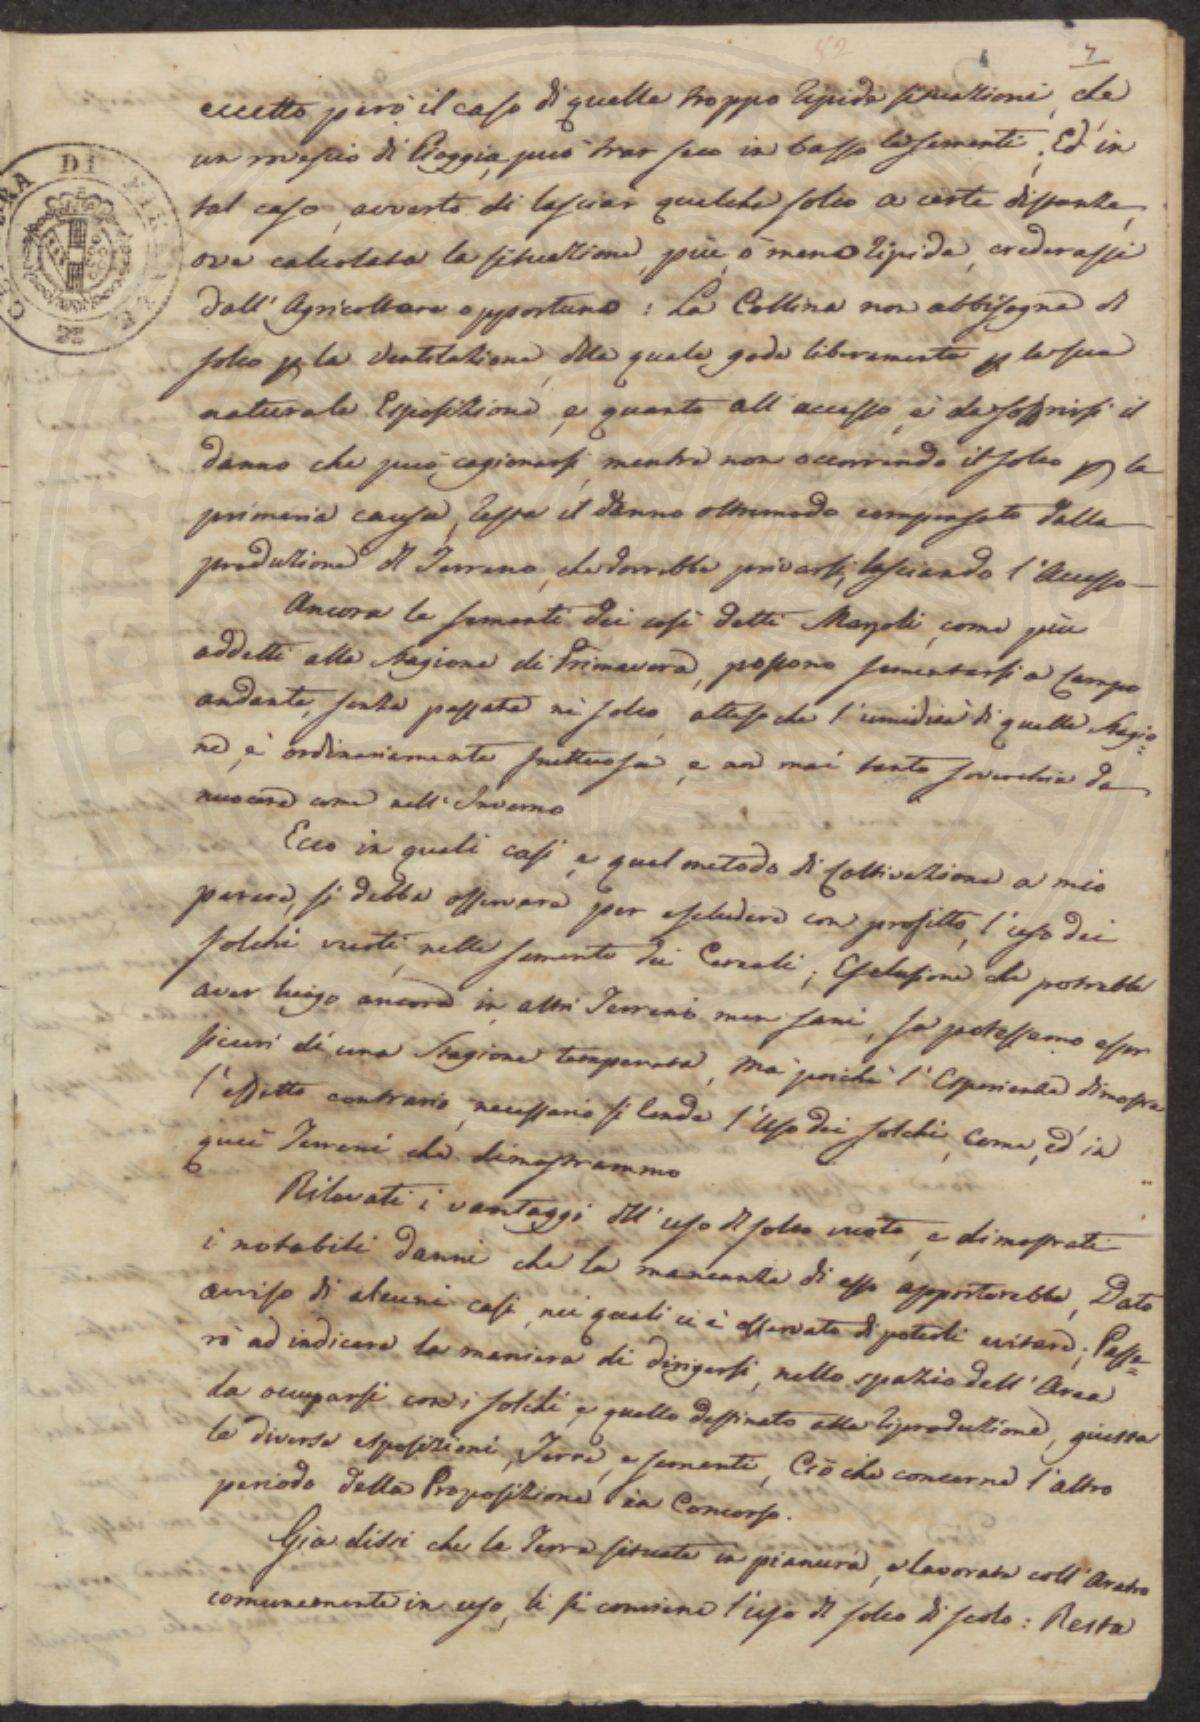 7
eccetto però il caso di quelle troppo ripide situazioni, che
un rovescio di Pioggia può trar seco in basso le sementi; Ed in
tal caso, avverto di lasciar qualche solco a certe distanze,
ove calcolata la situazione, più, o meno ripida, crederassi
dall' Agricoltore opportuno: La Collina non abbisogna di
solco p la Ventilazione, della quale gode liberamente p la sua
naturale Esposizione, e quanto all' accesso, è da soffrirsi il
danno che può cagionarsi, mentre non occorrendo il solco p la
primaria causa, resta il danno oltremodo compensato dalla
produzione del Terreno, che dovrebbe privarsi, lasciando l'Accesso
Ancora le sementi dei così detti Marzoli, come più
addetti alla Stagione di Primavera, possono sementarsi a Campo
andante, senza passate nè solco, attesoche l'umidità di quella Stagio=
ne, è ordinariamente fruttuosa, e non mai tanto soverchia da
nuocere come nell' Inverno
Ecco in quali casi, e qual metodo di Coltivazione a mio
parere, si debba osservare per escludere con profitto, l'uso dei
solchi vuoti, nella sementa dei Cereali; Esclusione che potrebbe
aver luogo ancora in altri Terreni men sani, se potessamo esser
sicuri di una Stagione temperata, Ma poichè l'Esperienza dimostra
l'effetto contrario, necessario si rende l'Uso dei solchi, come, ed in
quei Terreni che dimostrammo
Rilevati i vantaggi dell' uso del solco vuoto, e dimostrati
i notabili danni che la mancanza di esso apporterebbe, Dato
avviso di alcuni casi, nei quali si è osservato di poterli evitare; Passe=
rò ad indicare la maniera di dirigersi, nello spazio dell' Area
da occuparsi con i solchi, e quello destinato alla riproduzione, giusta
le diverse esposizioni, Terre, e sementi, Ciò che concerne l'altro
periodo della Proposizione in Concorso.
Già dissi che la Terra situata in pianura, e lavorata coll' Aratro
comunemente in uso, li si conviene l'uso del solco di scolo: Resta